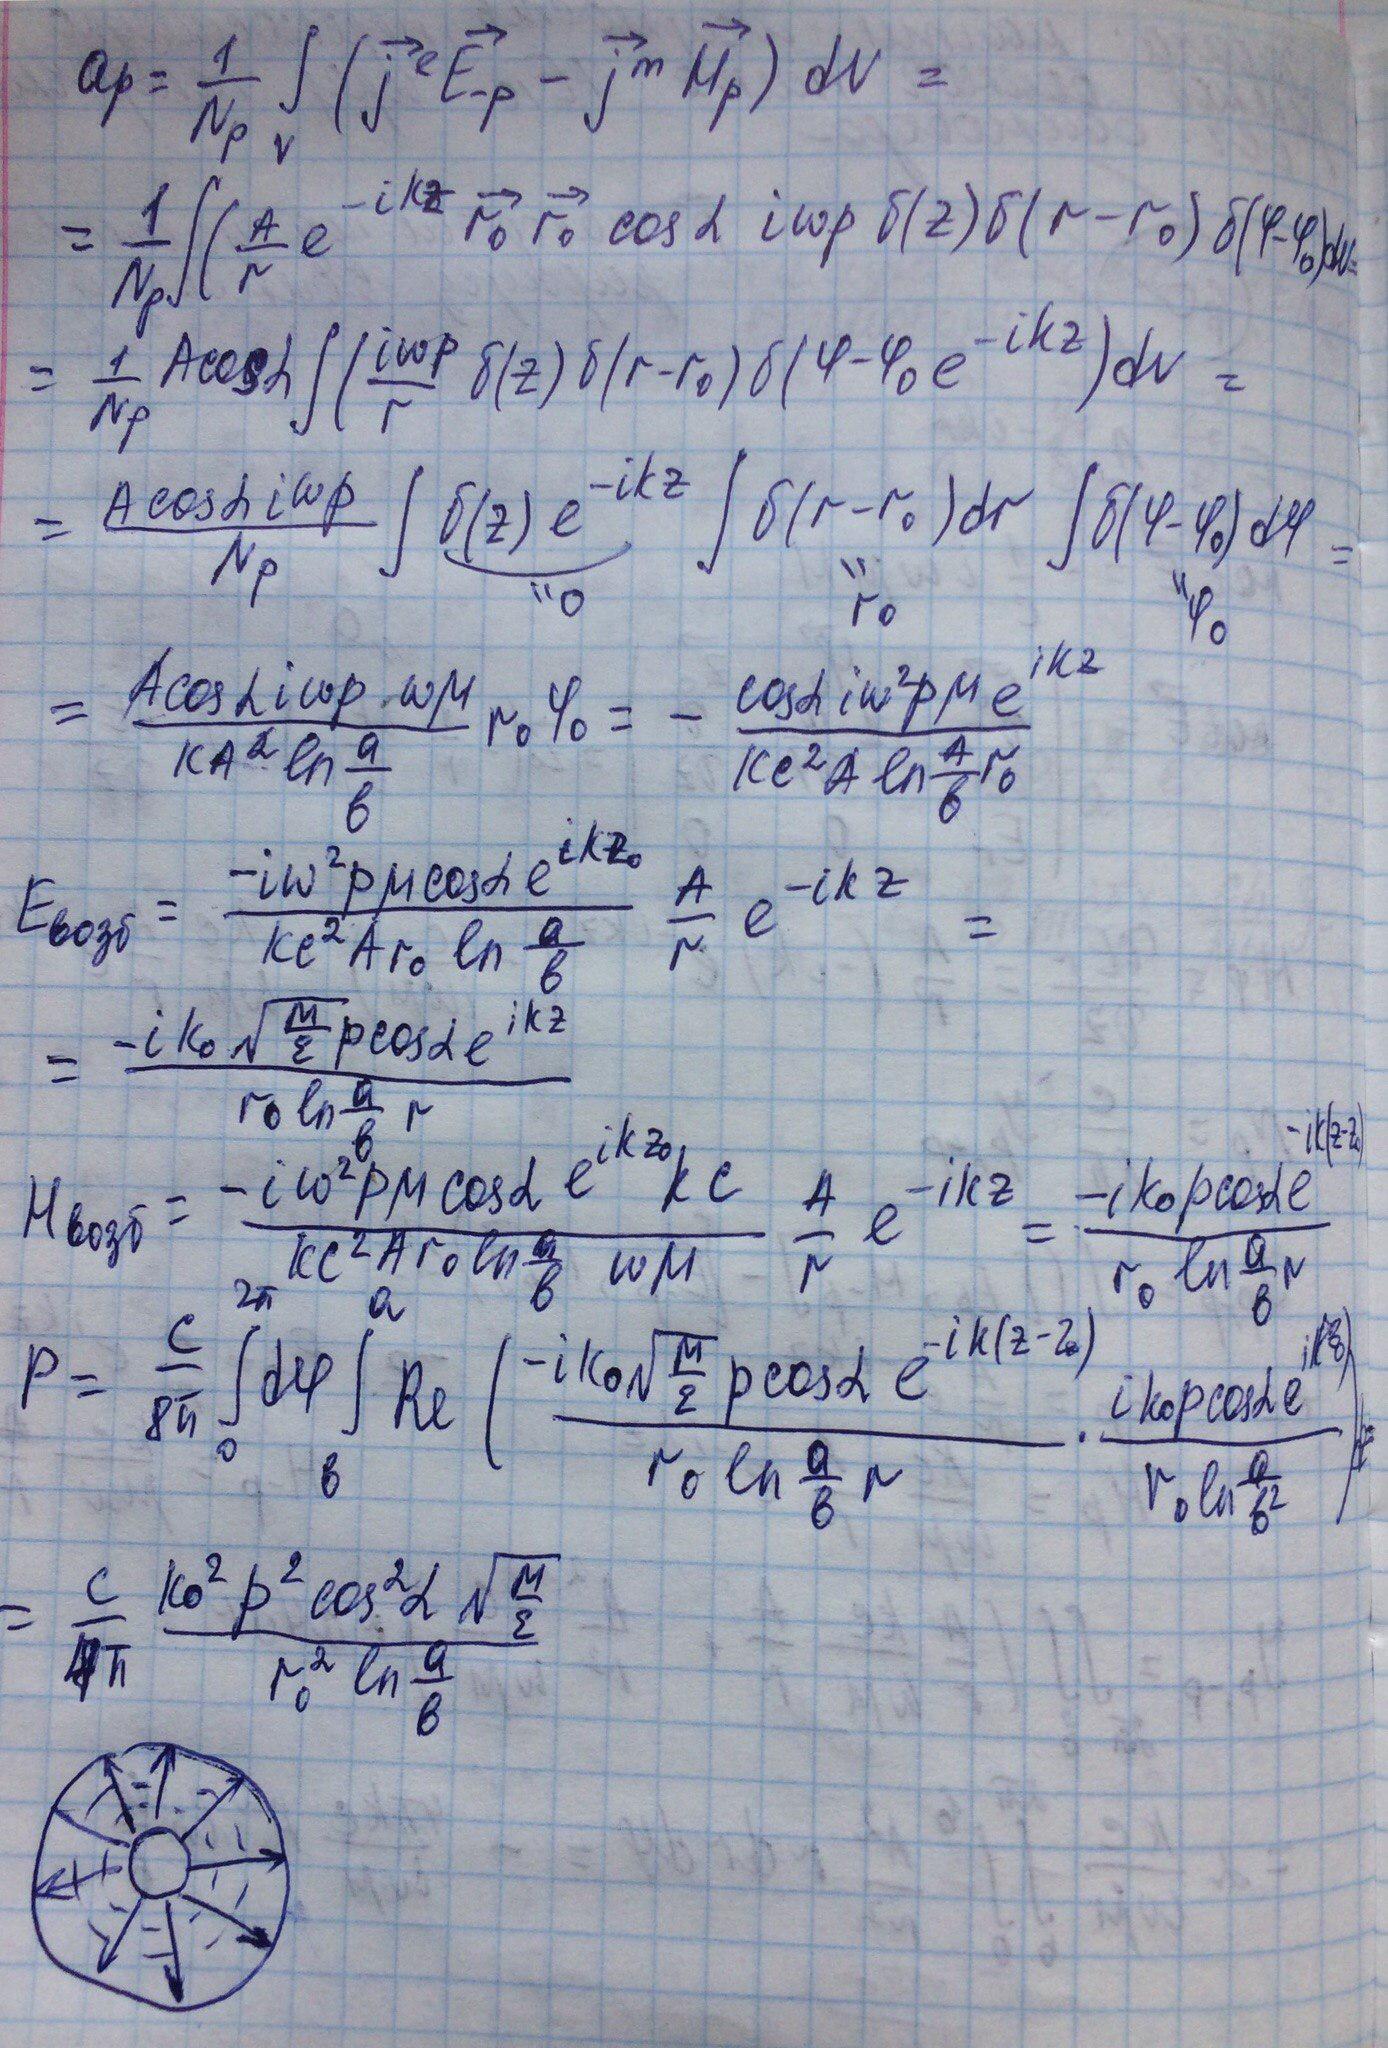 aₚ = 1/Nₚ ∫_V (j⃗ᵉ E⃗₋ₚ − j⃗ᵐ H⃗ₚ) dV =
= 1/Nₚ ∫ (A/r e^(−ikz) r⃗₀ r⃗₀ cosα iωp δ(z) δ(r−r₀) δ(φ−φ₀) dV =
= 1/Nₚ A cosα ∫ (iωp/r δ(z) δ(r−r₀) δ(φ−φ₀ e^(−ikz)) dV =
= A cosα iωp / Nₚ ∫ δ(z) e^(−ikz) ∫ δ(r−r₀) dr ∫ δ(φ−φ₀) dφ =
"0 "r₀ "φ₀
= A cosα iωp ωμ / kA² ln a/b r₀ φ₀ = − cosα iω²pμ e^(ikz) / kc²A ln A/b r₀
Eвозб = −iω²pμ cosα e^(ikz₀) / kc²A r₀ ln a/b A/r e^(−ikz) =
= −ik₀ √(μ/ε) p cosα e^(ikz) / r₀ ln a/b r
Hвозб = −iω²pμ cosα e^(ikz₀) kc / kc²A r₀ ln a/b ωμ A/r e^(−ikz) = −ik₀ p cosα e^(−ik(z−z₀)) / r₀ ln a/b r
P = c/8π ∫₀^2π dφ ∫_b^a Re ( −ik₀ √(μ/ε) p cosα e^(−ik(z−z₀)) / r₀ ln a/b r · ik₀ p cosα / r₀ ln a/b² ) =
= c/4π k₀² p² cos²α √(μ/ε) / r₀² ln a/b